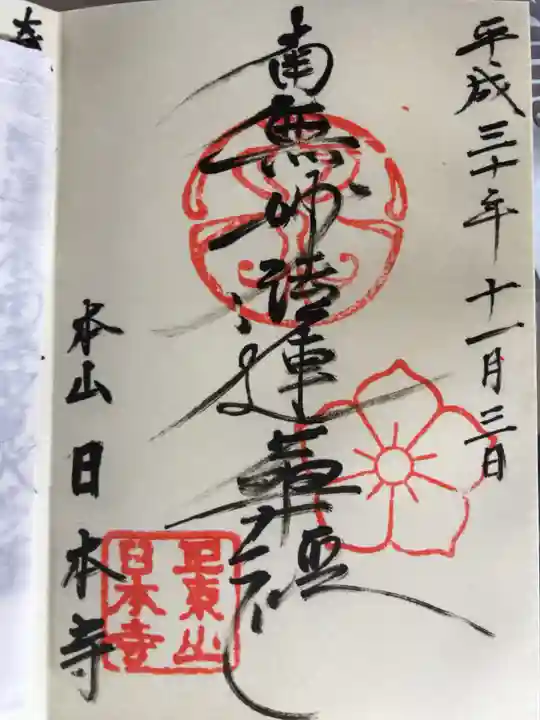 平成三十年十一月三日
南無妙法蓮華經
本山日本寺
正東山
日本寺